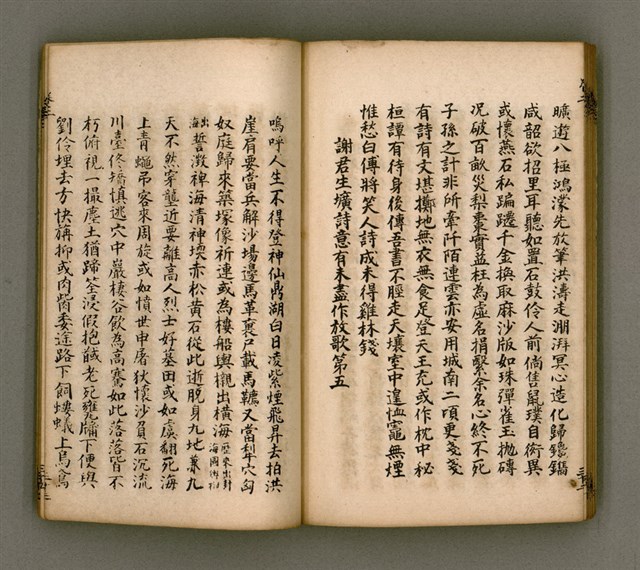 曠遊八極鴻濛先放筆洪濤走溯湃冥心造化歸鑪錫
咸韶欲招里耳聽如置石鼓伶人前倘隹鼠璞自衒異
或懷燕石私蹁躚千金換取麻沙版如珠彈雀玉抛磚
况破百畝災梨棗實益枉為虛名捐繫余名心終不死
子孫之計非所牽阡陌連雲亦安用城南二頃更戔戔
有詩有文堪擲地無衣無食足登天王充或作枕中秘
桓譚有待身後傳吾書不脛走天壤室中遑恤竈無煙
惟愁白傅將笑人詩成未得雞林錢
謝君生壙詩意有未盡作放歌第五
嗚呼人生不得登神仙鼎湖白日凌紫煙飛昇去拍洪
崖肩要當兵解沙場邊馬革裹尸載馬韉又當犁穴匈
奴庭歸來築塚像祈連或為樓船輿櫬出橫海
出誓澂裨海清神堧赤松黃石從此逝脫身九地兼九
天不然穿壟近要離高人烈士好墓田或如虞翻死海
上青蠅吊客來周旋或如憤世申屠狄懷沙負石沉流
川臺佟墻慎逃穴中巖棲谷飲為高騫如此落落皆不
朽俯視一撮塵土猶蹄筌浸假抱餓老死雍牖下便與
劉伶埋去方快旃抑或肉胔委途路下飼螻蟻上烏鳶